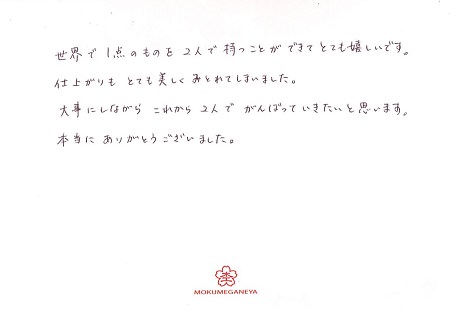 世界で1点のものを2人で持つことができてとても嬉しいです。
仕上がりもとても美しくみとれてしまいました。
大事にしながらこれから2人でがんばっていきたいと思います。
本当にありがとうございました。
MOKUMEGANEYA